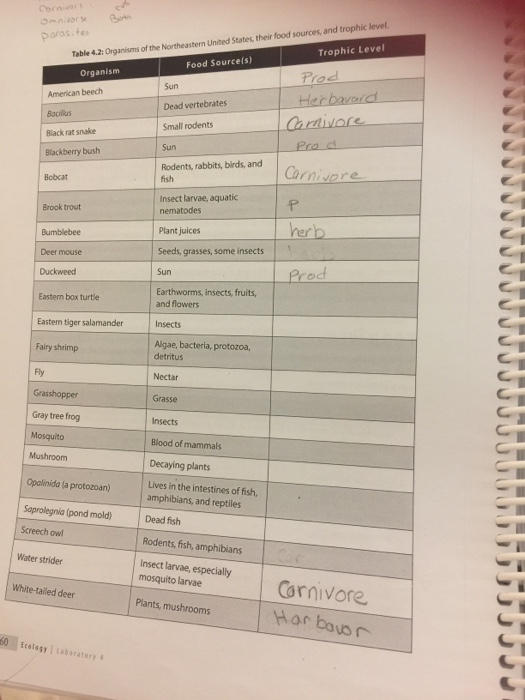 Carnivore
Omnivorse
parasites
Table 4.2: Organisms of the Northeastern United States, their food sources, and trophic level.
Organism Food Source(s) Trophic Level
American beech Sun Prod
Bacillus Dead vertebrates Herbavard
Black rat snake Small rodents Carnivore
Blackberry bush Sun Prod
Bobcat Rodents, rabbits, birds, and
fish Carnivore
Brook trout Insect larvae, aquatic
nematodes P
Bumblebee Plant juices herb
Deer mouse Seeds, grasses, some insects
Duckweed Sun Prod
Eastern box turtle Earthworms, insects, fruits,
and flowers
Eastern tiger salamander Insects
Fairy shrimp Algae, bacteria, protozoa,
detritus
Fly Nectar
Grasshopper Grasse
Gray tree frog Insects
Mosquito Blood of mammals
Mushroom Decaying plants
Opalinida (a protozoan) Lives in the intestines of fish,
amphibians, and reptiles
Saprolegnia (pond mold) Dead fish
Screech owl Rodents, fish, amphibians Car
Water strider Insect larvae, especially
mosquito larvae Carnivore
White-tailed deer Plants, mushrooms Harbavor
60 Ecology | Laboratory 4